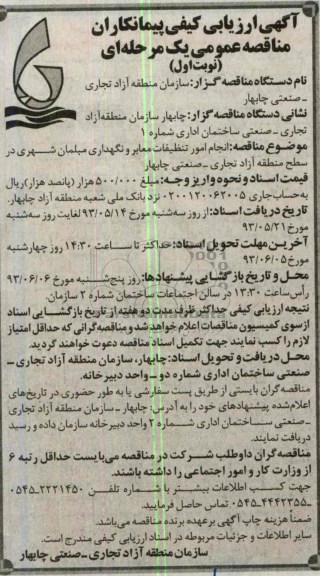 آگهی ارزیابی کیفی پیمانکاران
مناقصه عمومی یک مرحله‌ای
(نوبت اول)
نام دستگاه مناقصه گزار: سازمان منطقه آزاد تجاری
ـ صنعتی چابهار
نشانی دستگاه مناقصه گزار: چابهار سازمان منطقه آزاد
تجاری ـ صنعتی ساختمان اداری شماره ۱
موضوع مناقصه: انجام امور تنظیفات معابر و نگهداری مبلمان شهری در
سطح منطقه آزاد تجاری ـ صنعتی چابهار
قیمت اسناد و نحوه واریز وجه: مبلغ ۵۰۰/۰۰۰ هزار (پانصد هزار) ریال
به حساب جاری ۰۲۰۰۱۲۰۰۶۲۰۰۵ نزد بانک ملی شعبه منطقه آزاد چابهار.
تاریخ دریافت اسناد: از روز سه‌شنبه مورخ ۹۳/۰۵/۱۴ لغایت روز سه‌شنبه
مورخ ۹۳/۰۵/۲۱
آخرین مهلت تحویل اسناد: حداکثر تا ساعت ۱۴:۳۰ روز چهارشنبه
مورخ ۹۳/۰۶/۰۵
محل و تاریخ بازگشایی پیشنهادها: روز پنج‌شنبه مورخ ۹۳/۰۶/۰۶
رأس ساعت ۱۳:۳۰ در سالن اجتماعات ساختمان شماره ۲ سازمان.
نتیجه ارزیابی کیفی حداکثر ظرف مدت دو هفته از تاریخ بازگشایی اسناد
از سوی کمیسیون مناقصات اعلام خواهد شد و مناقصه گرانی که حداقل امتیاز
لازم را کسب نمایند جهت تکمیل اسناد مناقصه دعوت خواهند گردید.
محل دریافت و تحویل اسناد: چابهار، سازمان منطقه آزاد تجاری ـ
صنعتی ساختمان اداری شماره دو ـ واحد دبیرخانه.
مناقصه گران بایستی از طریق پست سفارشی یا به طور حضوری در تاریخ‌های
اعلام‌شده پیشنهادهای خود را به آدرس: چابهار ـ سازمان منطقه آزاد تجاری
ـ صنعتی ساختمان اداری شماره ۲ واحد دبیرخانه سازمان داده و رسید
دریافت نمایند.
مناقصه گران داوطلب شرکت در مناقصه می‌بایست حداقل رتبه ۶
از وزارت کار و امور اجتماعی را داشته باشند.
جهت کسب اطلاعات بیشتر با شماره تلفن ۲۲۲۱۴۵۰-۰۵۴۵
ـ ۴۴۴۲۳۵۵-۰۵۴۵ تماس حاصل فرمایید.
ضمناً هزینه چاپ آگهی برعهده برنده مناقصه می‌باشد.
سایر اطلاعات و جزئیات مربوطه در اسناد ارزیابی کیفی مندرج است.
سازمان منطقه آزاد تجاری ـ صنعتی چابهار